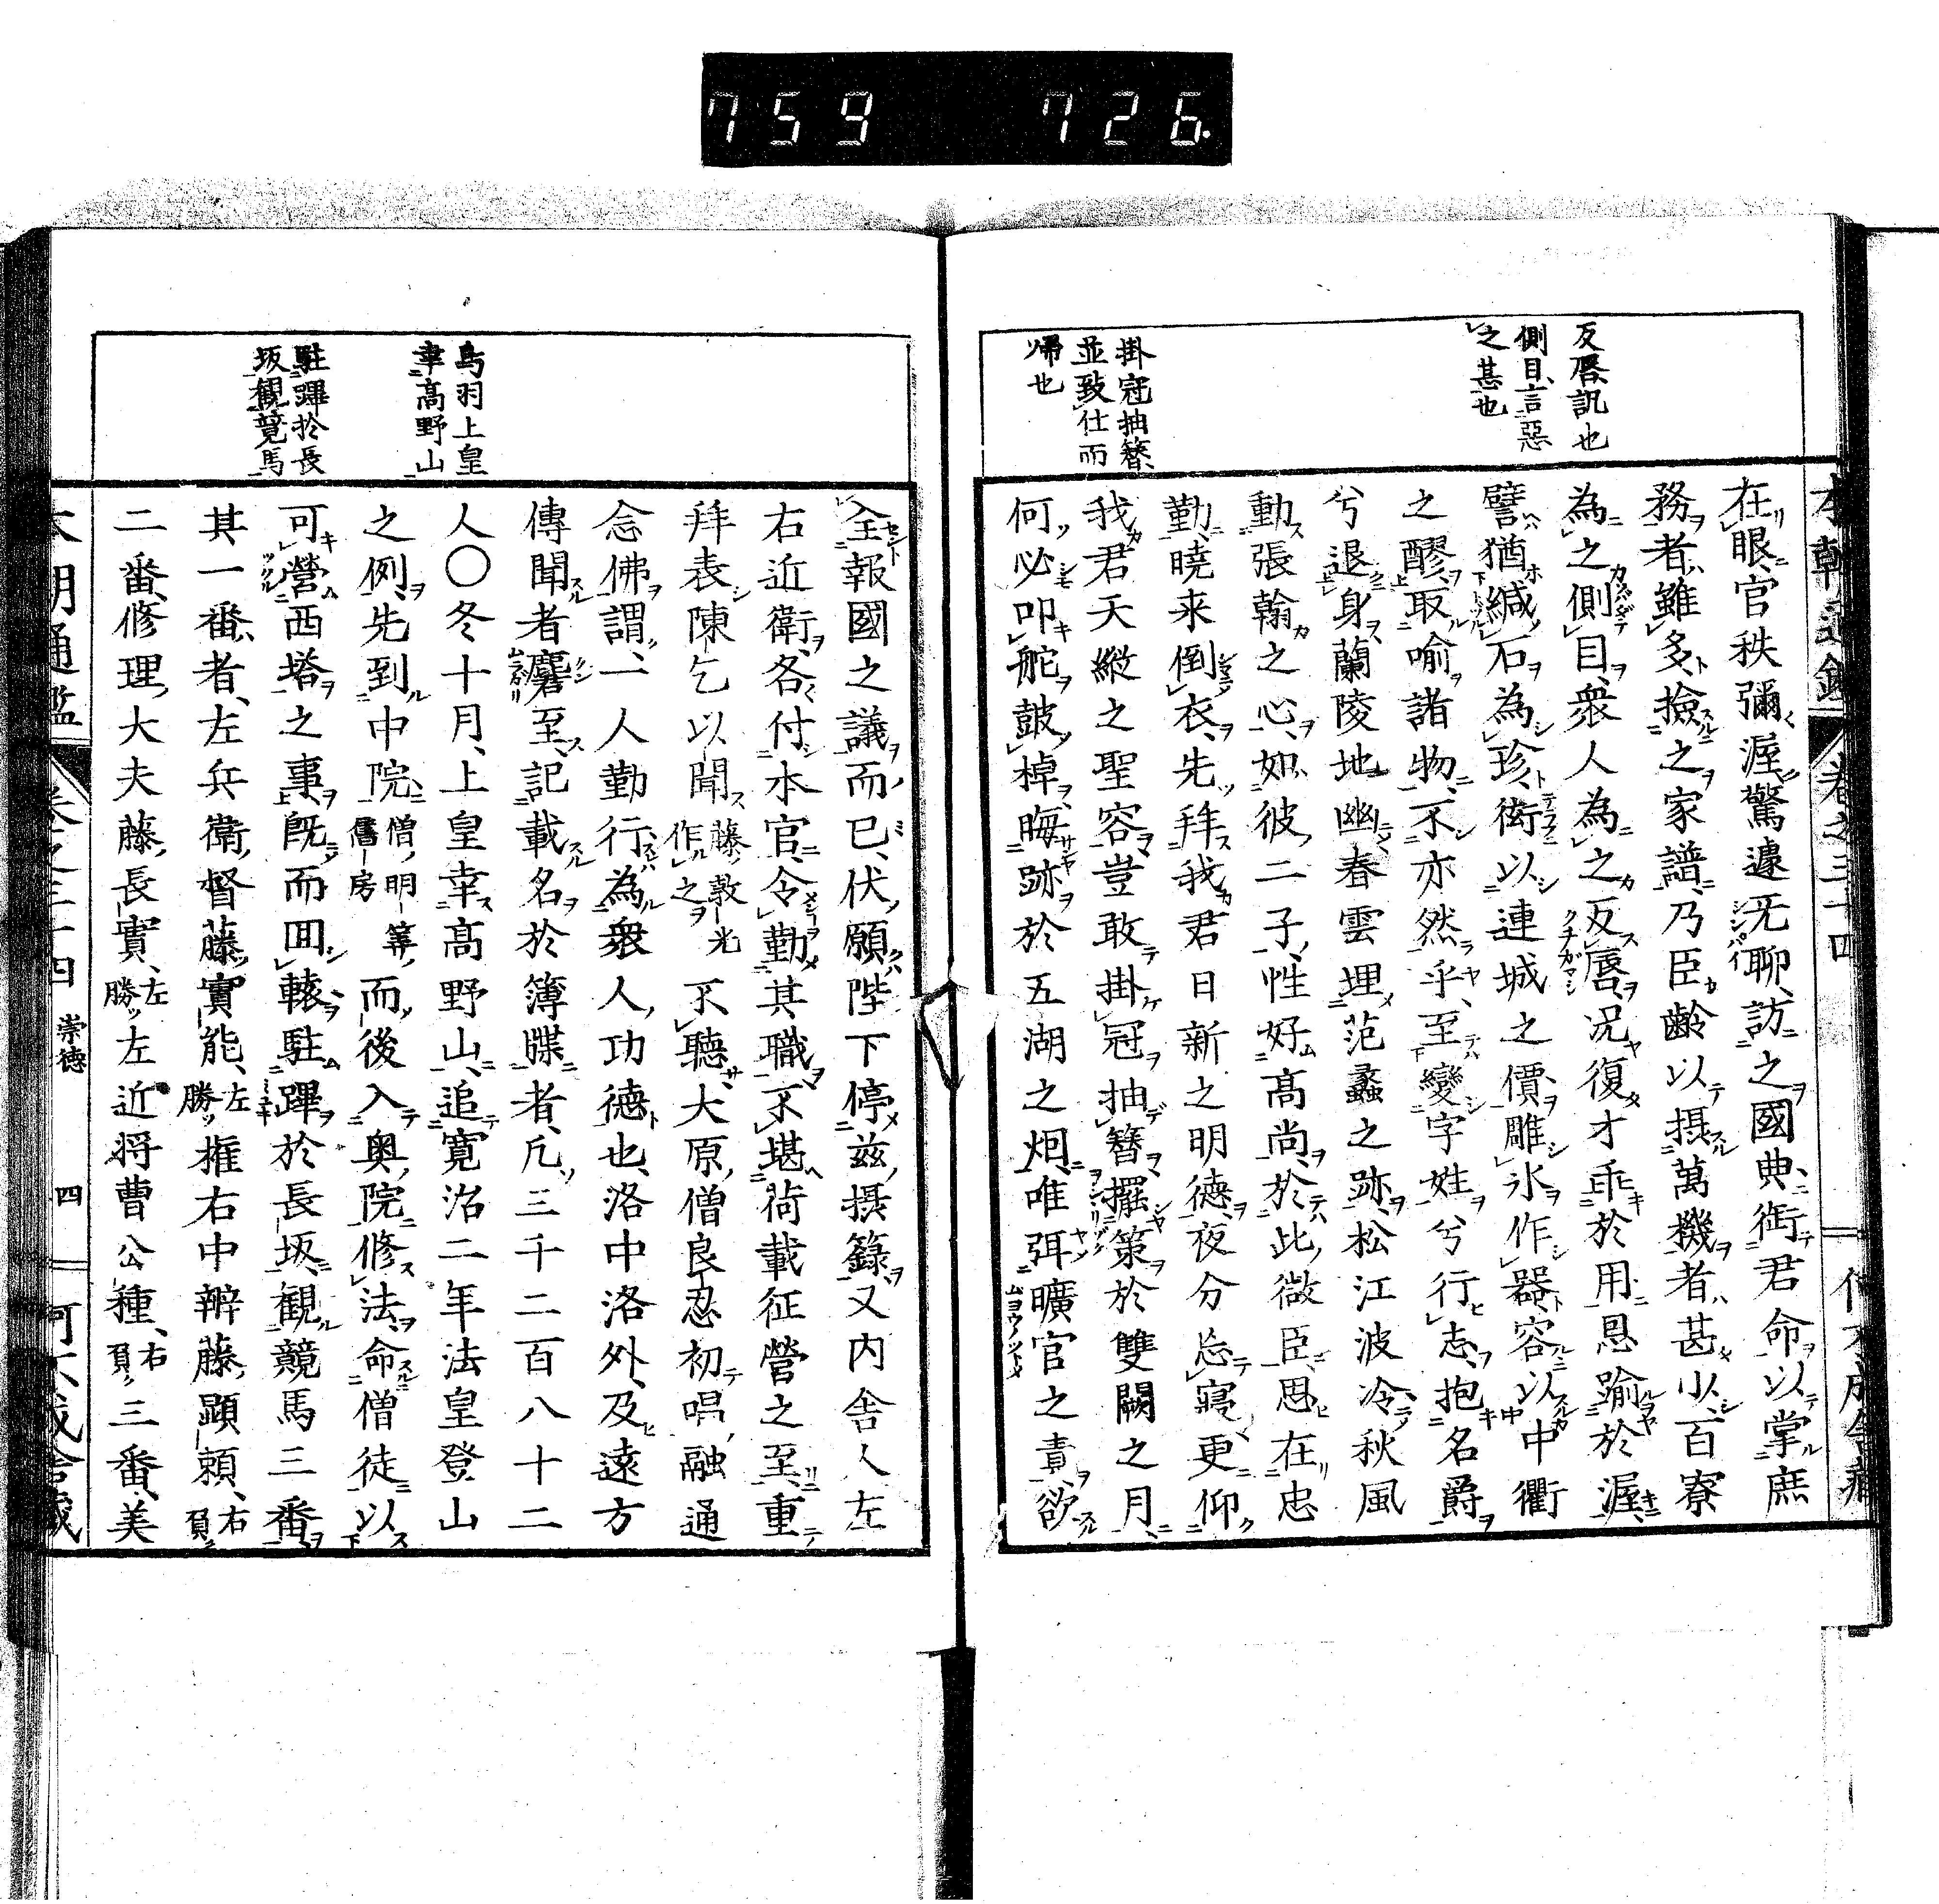 759 726.
反唇訊也
側目、言惡
之甚也
掛冠抽簪、
並致仕而
帰也
在眼、官秩彌渥、驚遽无聊、訪之國典、銜君命以掌庶
務者雖多、撿之家譜、乃臣齡以摂萬機者甚少、百寮
為之側目、衆人為之反唇、况復才乖於用、恩踰於渥、
譬猶緘石為珍、衒以連城之價、雕氷作器、容以中衢
之醪、取喻諸物、不亦然乎、至變字姓兮行志、抱名爵
兮退身、蘭陵地幽、春雲埋范蠡之跡、松江波冷、秋風
動張翰之心、如彼二子、性好高尚、於此微臣、思在忠
勤、曉来倒衣、先拜我君日新之明德、夜分忘寢、更仰
我君天縱之聖容、豈敢掛冠抽簪、擺策於雙闕之月、
何必叩舵鼓棹、晦跡於五湖之烟、唯弭曠官之責、欲
鳥羽上皇
幸高野山
駐蹕於長
坂観競馬
全報國之議而已、伏願陛下停兹摂籙、又内舎人左
右近衛、各付本官、令勤其職、不堪荷載征營之至、重
拜表陳乞以聞 藤敦光作之 不聽、大原僧良忍初唱融通
念佛、謂一人勤行、為衆人功德也、洛中洛外、及遠方
傳聞者麕至、記載名於簿牒者、凢三千二百八十二
人〇冬十月、上皇幸高野山、追寛治二年法皇登山
之例、先到中院 僧明筭舊房 而後入奥院修法、命僧徒以
可營西塔之事、既而囬轅駐蹕於長坂、観競馬三番、
其一番者、左兵衛督藤實能、左勝 権右中辨藤顕頼、右負
二番、修理大夫藤長實、左勝 左近将曹公種、右負 三番、美
本朝通鑑 卷之三十四 崇徳 四